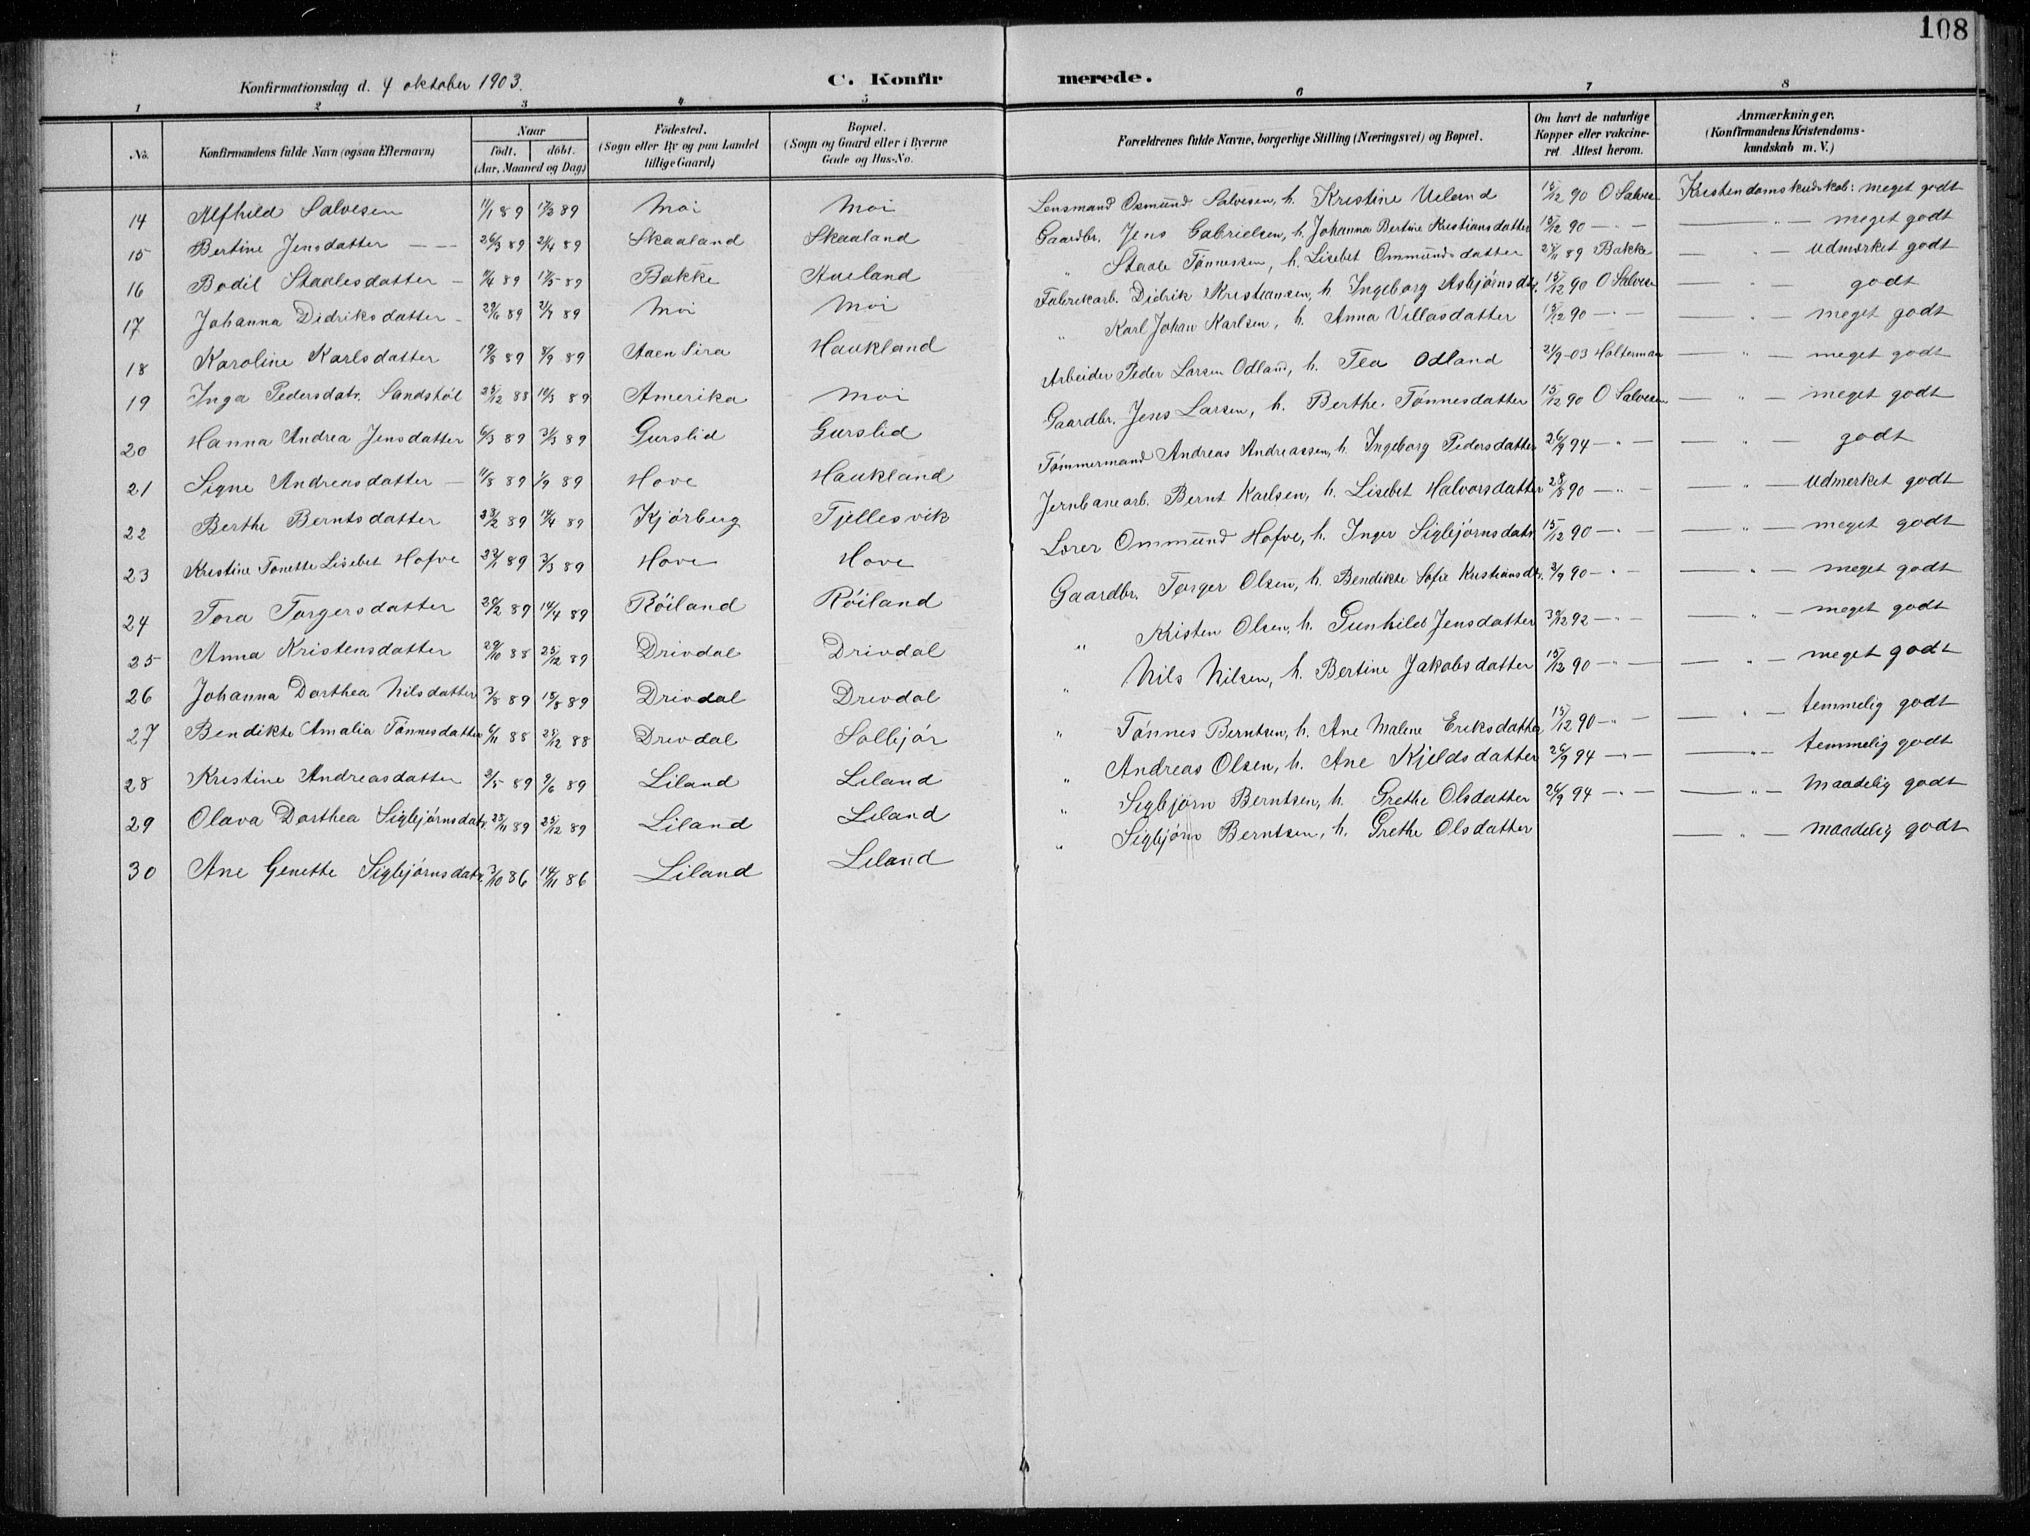 108
Konfirmationsdag d. 4 oktober 1903.
C. Konfirmerede.
1 2 3 4 5 6 7 8
No. Konfirmandens fulde Navn (ogsaa Efternavn) Naar født. døbt. (Aar, Maaned og Dag) Fødested. (Sogn eller By og paa Landet tillige Gaard) Bopæl. (Sogn og Gaard eller i Byerne Gade og Hus-No. Forældrenes fulde Navne, borgerlige Stilling (Næringsvei) og Bopæl. Om havt de naturlige Kopper eller vakcineret. Attest herom. Anmærkninger. (Konfirmandens Kristendomskundskab m. V.)
14 Alfhild Salvesen 11/1 89 17/3 89 Moi Moi Lensmand Osmund Salvesen, h. Kristine Ueland 15/12 90 O Salvesen Kristendomskudskab: meget godt
15 Bertine Jensdatter — — 26/3 89 2/4 89 Skaaland Skaaland Gaardbr. Jens Gabrielsen, h. Johanna Bertine Kristiansdatter 15/12 90 — " — — " — meget godt
16 Bodil Staalesdatter — 9/4 89 17/5 89 Bakke Aueland " Staale Tønnessen, h. Lisebet Ommundsdatter 28/11 89 Bakke — " — Udmærket godt
17 Johanna Didriksdatter — 29/6 89 2/7 89 Moi Moi Fabrikarb. Didrik Kristiansen, h. Ingeborg Asbjørnsdtr. 15/12 90 O Salvesen — " — godt
18 Karoline Karlsdatter 19/8 89 8/9 89 Aaen Sira Haukland " Karl Johan Karlsen, h. Anna Villasdatter 15/12 90 — " — — " — meget godt
19 Inga Pedersdatr. Sandstøl 25/12 88 10/3 89 Amerika Moi Arbeider Peder Larsen Odland, h. Tea Odland 21/9 03 Holterman — " — meget godt
20 Hanna Andrea Jensdatter 6/3 89 31/3 89 Gurslid Gurslid Gaardbr. Jens Larsen, h. Berthe Tønnesdatter 15/12 90 O Salvesen — " — meget godt
21 Signe Andreasdatter — 11/8 89 1/9 89 Hove Haukland Tømmermand Andreas Andreassen, h. Ingeborg Pedersdatter 26/9 94 — " — — " — godt
22 Berthe Berntsdatter 23/2 89 14/4 89 Kjørberg Tjellesvik Jernbanearb. Bernt Karlsen, h. Lisebet Halvorsdatter 28/8 90 — " — — " — Udmerket godt
23 Kristine Tonette Lisebet Hofve 22/1 89 3/3 89 Hove Hove Lærer Ommund Hofve, h. Inger Sigbjørnsdatr. 15/12 90 — " — — " — meget godt
24 Tora Torgersdatter 20/2 89 14/4 89 Røiland Røiland Gaardbr. Torger Olsen, h. Bendikte Sofie Kristiansdtr. 3/9 90 — " — — " — meget godt
25 Anna Kristensdatter 29/10 88 25/12 89 Drivdal Drivdal " Kristen Olsen, h. Gunhild Jensdatter 30/12 92 — " — — " — meget godt
26 Johanna Dorthea Nilsdatter 3/8 89 18/8 89 Drivdal Drivdal " Nils Nilsen, h. Bertine Jakobsdatter 15/12 90 — " — — " — meget godt
27 Bendikte Amalia Tønnesdatter 6/11 88 25/12 88 Drivdal Solbjør " Tønnes Berntsen, h. Ane Malene Eriksdatter 15/12 90 — " — — " — temmelig godt
28 Kristine Andreasdatter 2/5 89 9/6 89 Liland Liland " Andreas Olsen, h. Ane Kjeldsdatter 26/9 94 — " — — " — temmelig godt
29 Olava Dorthea Sigbjørnsdatr. 23/11 89 25/12 89 Liland Liland " Sigbjørn Berntsen, h. Grethe Olsdatter 26/9 94 — " — — " — Maadelig godt
30 Ane Genette Sigbjørnsdatr. 3/10 86 14/11 86 Liland Liland " Sigbjørn Berntsen, h. Grethe Olsdatter — " — Maadelig godt